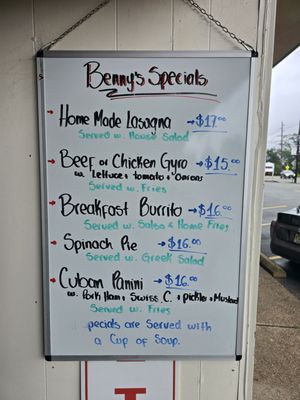 Benny's Specials
Home Made Lasagna → $17.00
Served w. House Salad
Beef or Chicken Gyro → $15.00
w. Lettuce + tomato + Onions
Served w. Fries
Breakfast Burrito → $16.00
Served w. Salsa & Home Fries
Spinach Pie → $16.00
Served w. Greek Salad
Cuban Panini → $16.00
w. Pork Ham + Swiss C. + pickles + Mustard
Served w. Fries
pecials are Served with
a Cup of Soup.
T